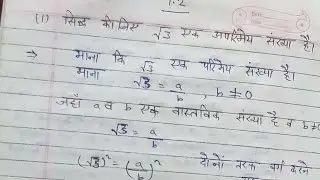 1.2
(1) सिद्ध कीजिए √3 एक अपरिमेय संख्या है।
⇒ माना कि √3 एक परिमेय संख्या है।
माना √3 = a/b , b ≠ 0
जहाँ a व b एक वास्तविक संख्या है व b ≠
√3 = a/b
(√3)² = (a/b)² दोनों तरफ वर्ग करने